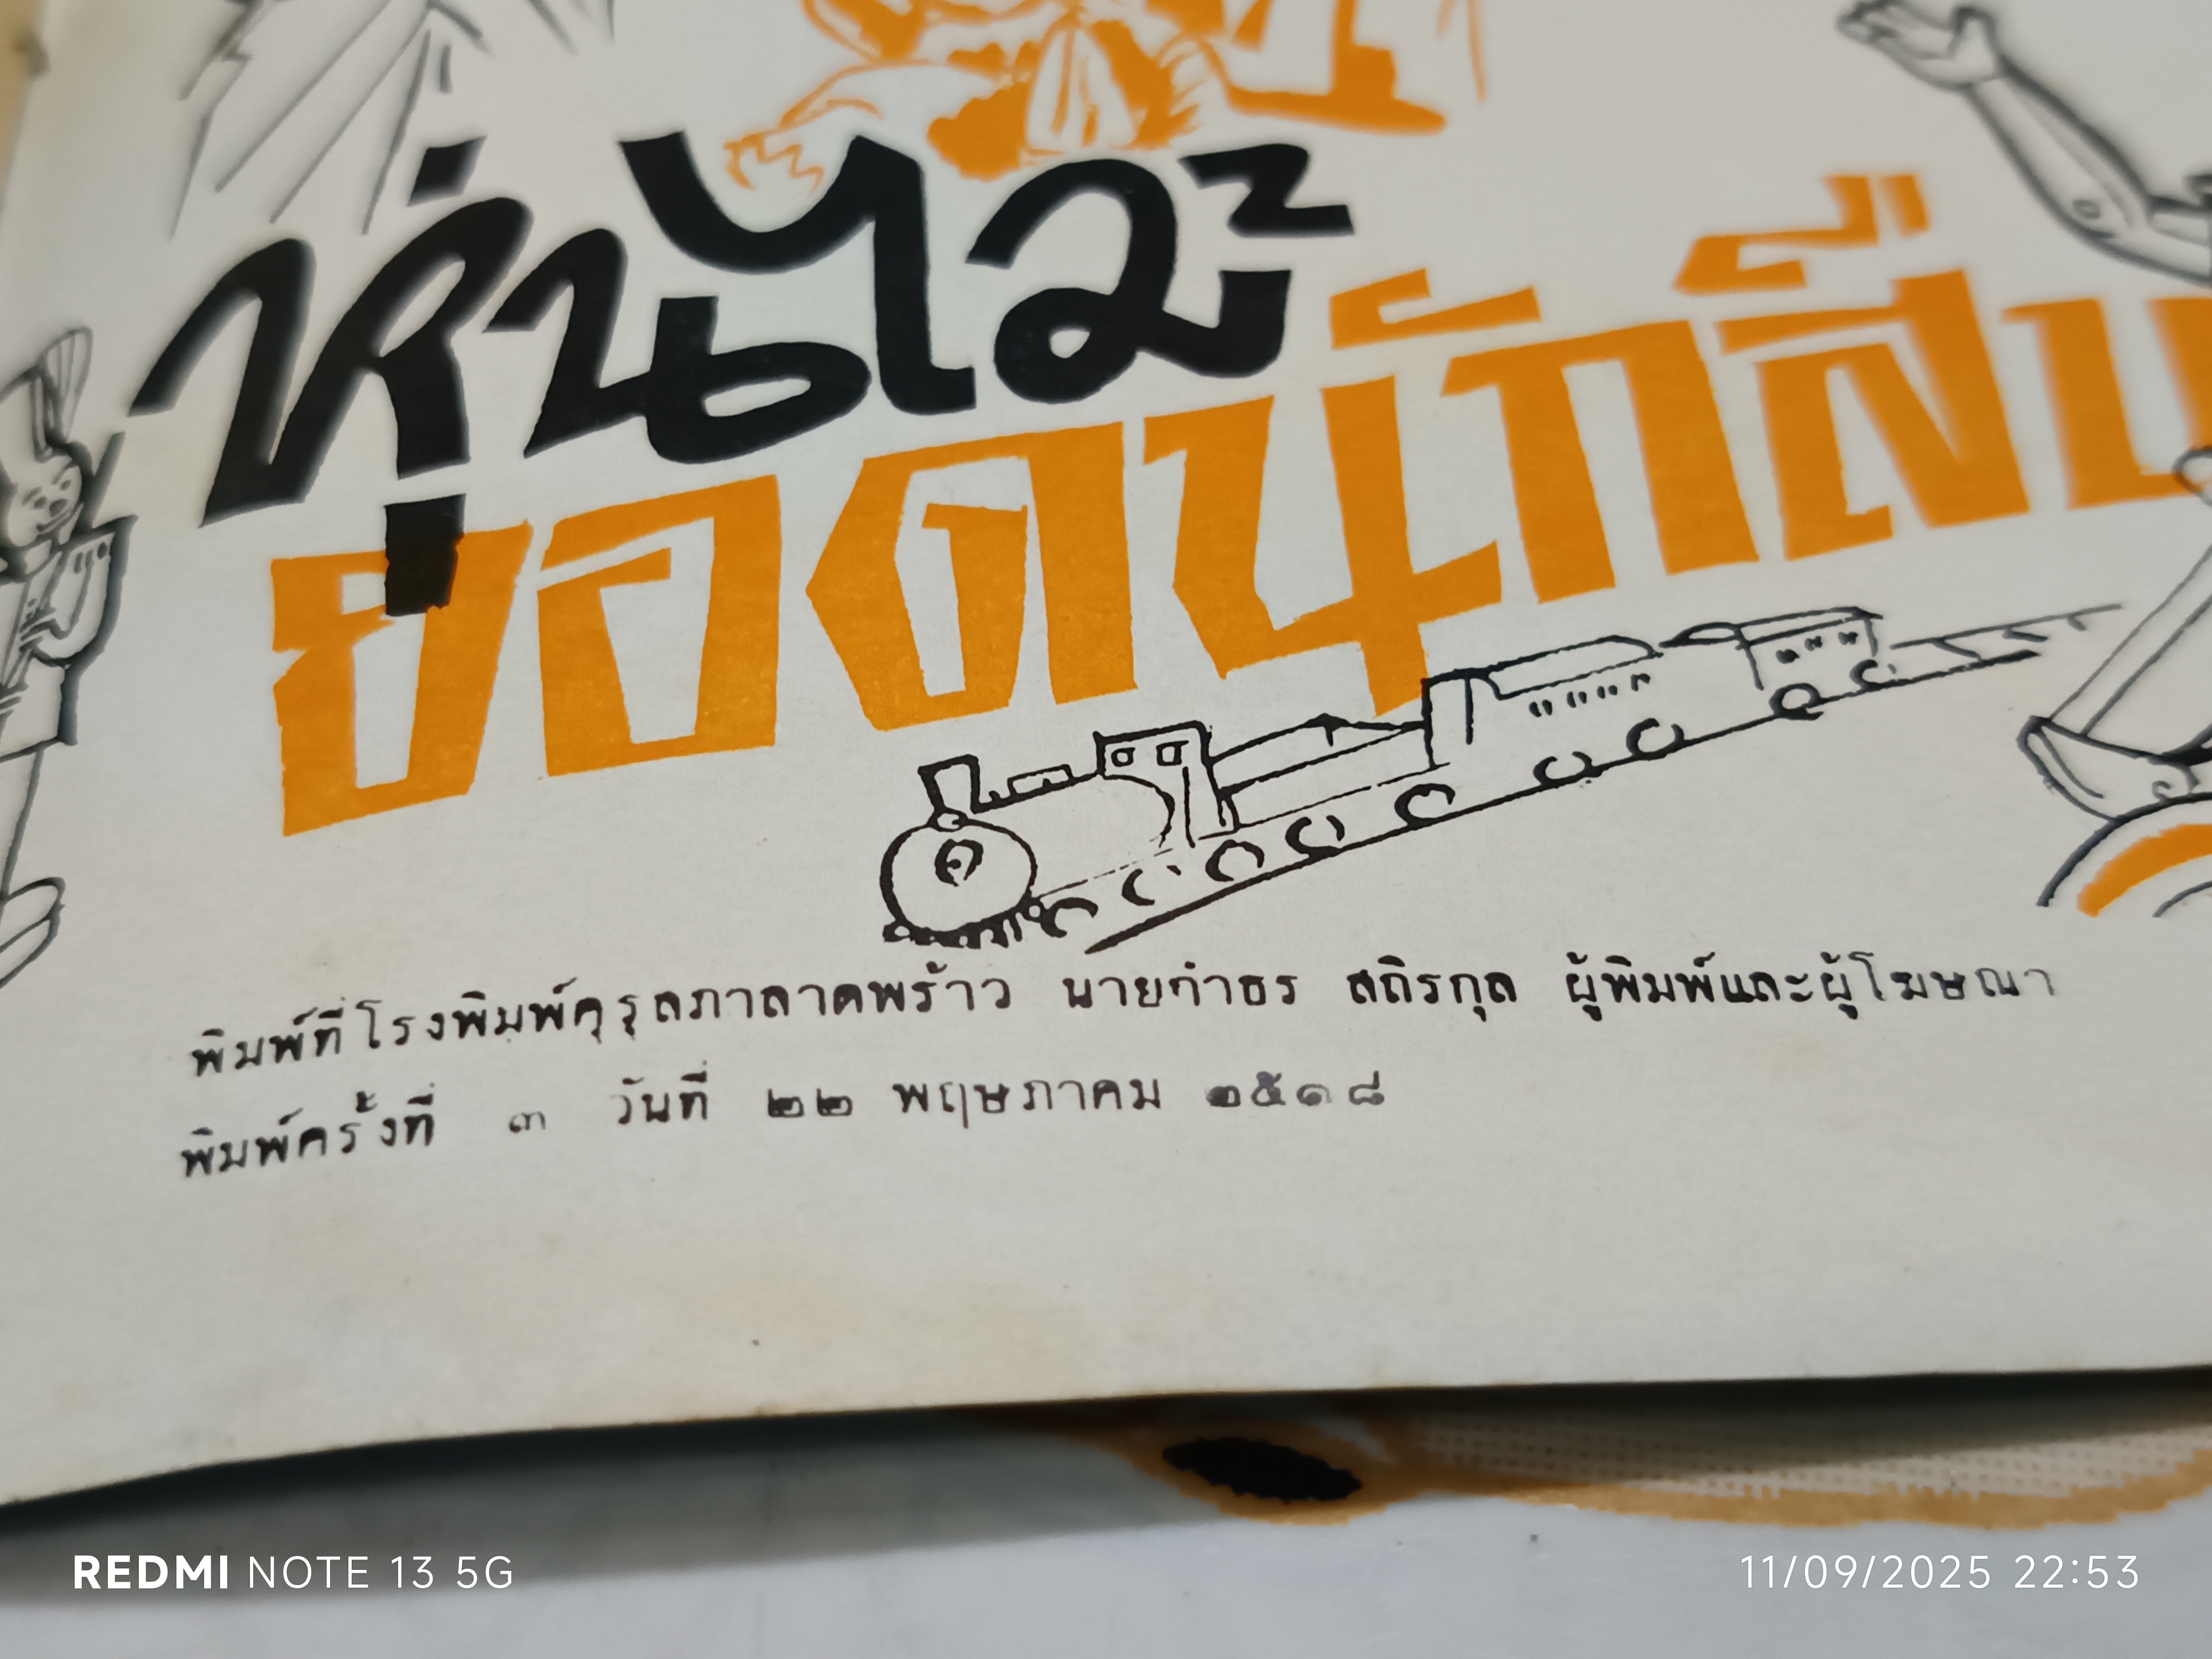 หุ่นไม้
ยอดนักสืบ
๑
พิมพ์ที่โรงพิมพ์คุรุสภาลาดพร้าว นายกำธร สถิรกุล ผู้พิมพ์และผู้โฆษณา
พิมพ์ครั้งที่ ๓ วันที่ ๒๒ พฤษภาคม ๒๕๑๘
REDMI NOTE 13 5G
11/09/2025 22:53